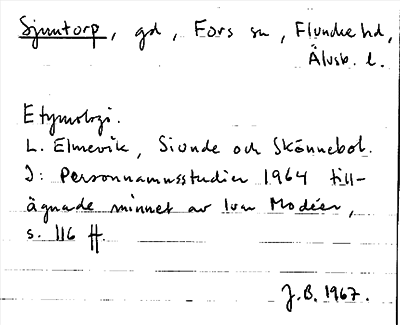 Sjuntorp, gd, Fors sn, Flundre hd,
Älvsb. l.
Etymologi.
L. Elmevik, Siunde och Skönnebol.
I: Personnamnsstudier 1964 till-
ägnade minnet av Ivar Modéer,
s. 116 ff.
J.B. 1967.